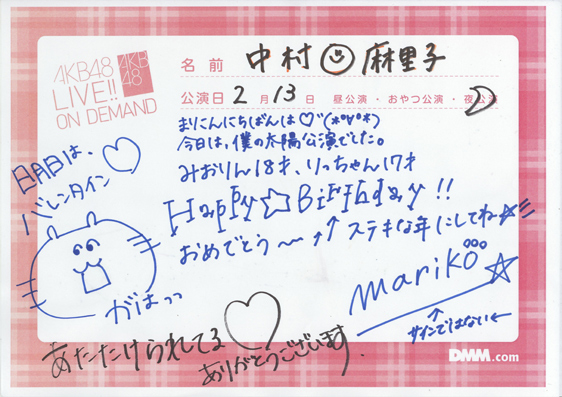 AKB48
LIVE!!
ON DEMAND
AKB
48
名前 中村 麻里子
公演日 2月13日 昼公演・おやつ公演・夜公演
まりこんにちばんは♡(*°∀°*)
今日は、僕の太陽公演でした。
みおりん18才、りっちゃん17才
Happy☆Birthday!!
おめでとう〜↑↑ステキな年にしてね☆
明日は、♡
バレンタイン
がはっっ
mariko☆
↑サインではない←
あたたけられてる♡
ありがとうございます
DMM.com